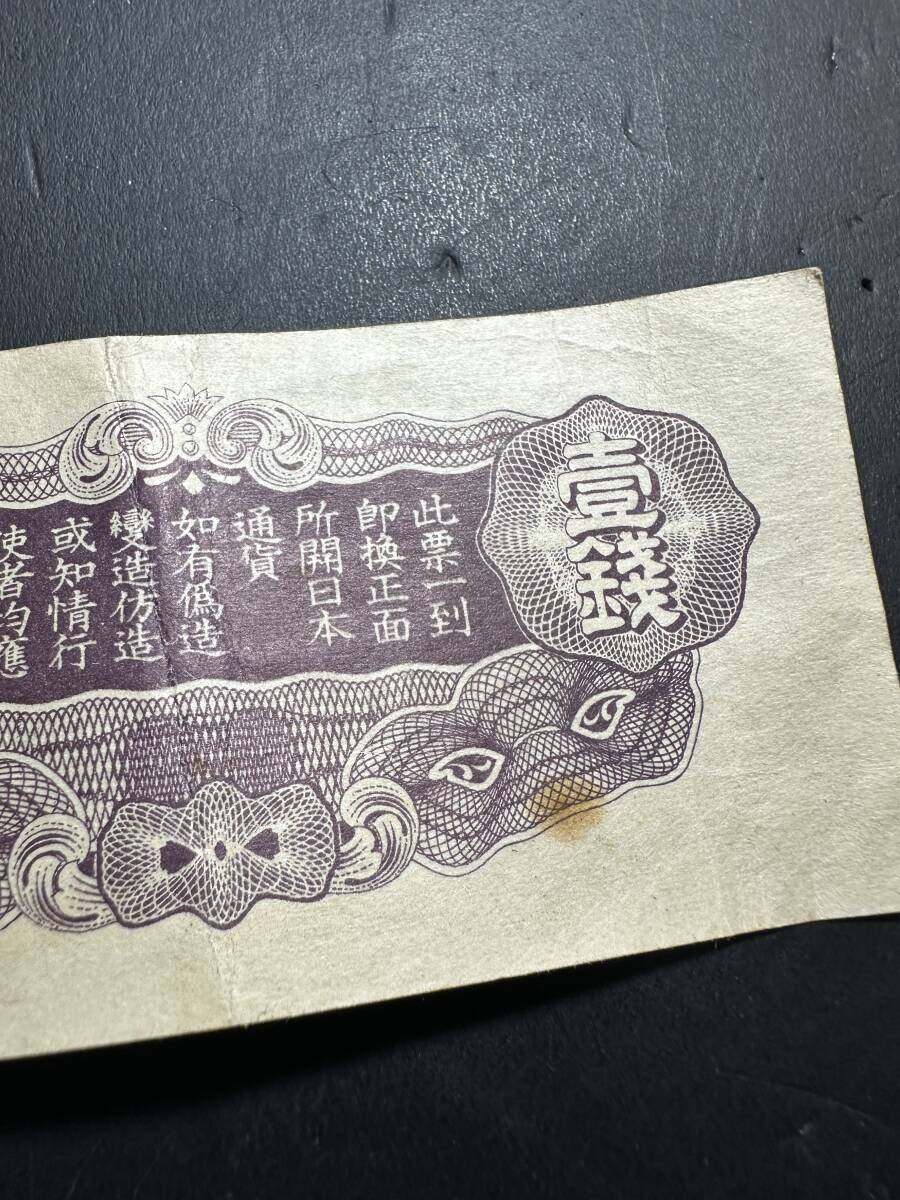 壹錢
此票一到
即換正面
所開日本
通貨
如有偽造
變造仿造
或知情行
使者均應